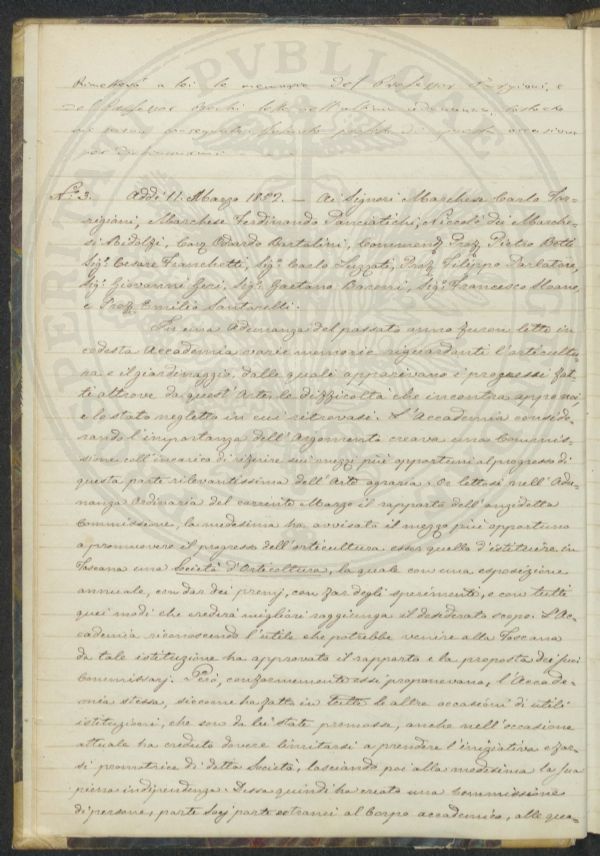 Rimetterà a lei le memorie del Professor Parigiani, e
del Professor Bechi lette nell'ultima adunanza,
per
N.º 3. Addì 11. Marzo 1852. — Ai Signori Marchese Carlo Tor-
rigiani, Marchese Ferdinando Panciatichi, Niccolò dei Marche-
si Ridolfi, Cav. Odardo Bartalini, Commend. Prof. Pietro Betti
Sig.r Cesare Franchetti, Sig.r Carlo Luzzati, Prof. Filippo Parlatore,
Sig.r Giovanni Geri, Sig.r Gaetano Baroni, Sig.r Francesco Sloane,
e Prof. Emilio Santarelli.
In una Adunanza del passato anno furon lette in
codesta Accademia varie memorie riguardanti l'orticultu-
ra e il giardinaggio, dalle quali apparivano i progressi fat-
ti altrove da quest'Arte, le difficoltà che incontra appo noi,
e lo stato negletto in cui ritrovasi. L'Accademia conside-
rando l'importanza dell'Argomento creava una Commis-
sione coll'incarico di riferire sui mezzi più opportuni al progresso di
questa parte rilevantissima dell'Arte agraria. Or lettosi nell'Adu-
nanza Ordinaria del corrente Marzo il rapporto dell'anzidetta
Commissione, la medesima ha avvisato il mezzo più opportuno
a promuovere il progresso dell'orticultura esser quello d'istituire in
Toscana una Società d'Orticoltura, la quale con una esposizione
annuale, con dar dei premj, con far degli sperimenti, e con tutti
quei modi che crederà migliori raggiunga il desiderato scopo. L'Ac-
cademia riconoscendo l'utile che potrebbe venire alla Toscana
da tale istituzione ha approvato il rapporto e la proposta dei suoi
Commissarj. Però, conformemente essi proponevano, l'Accade-
mia stessa, siccome ha fatto in tutte le altre occasioni di utili
istituzioni, che son da lei state promosse, anche nell'occasione
attuale ha creduto dovere limitarsi a prendere l'iniziativa e far-
si promotrice di detta Società, lasciando poi alla medesima la sua
piena indipendenza. Dessa quindi ha creato una Commissione
di persone, parte Socj parte estranei al Corpo accademico, alle qua-